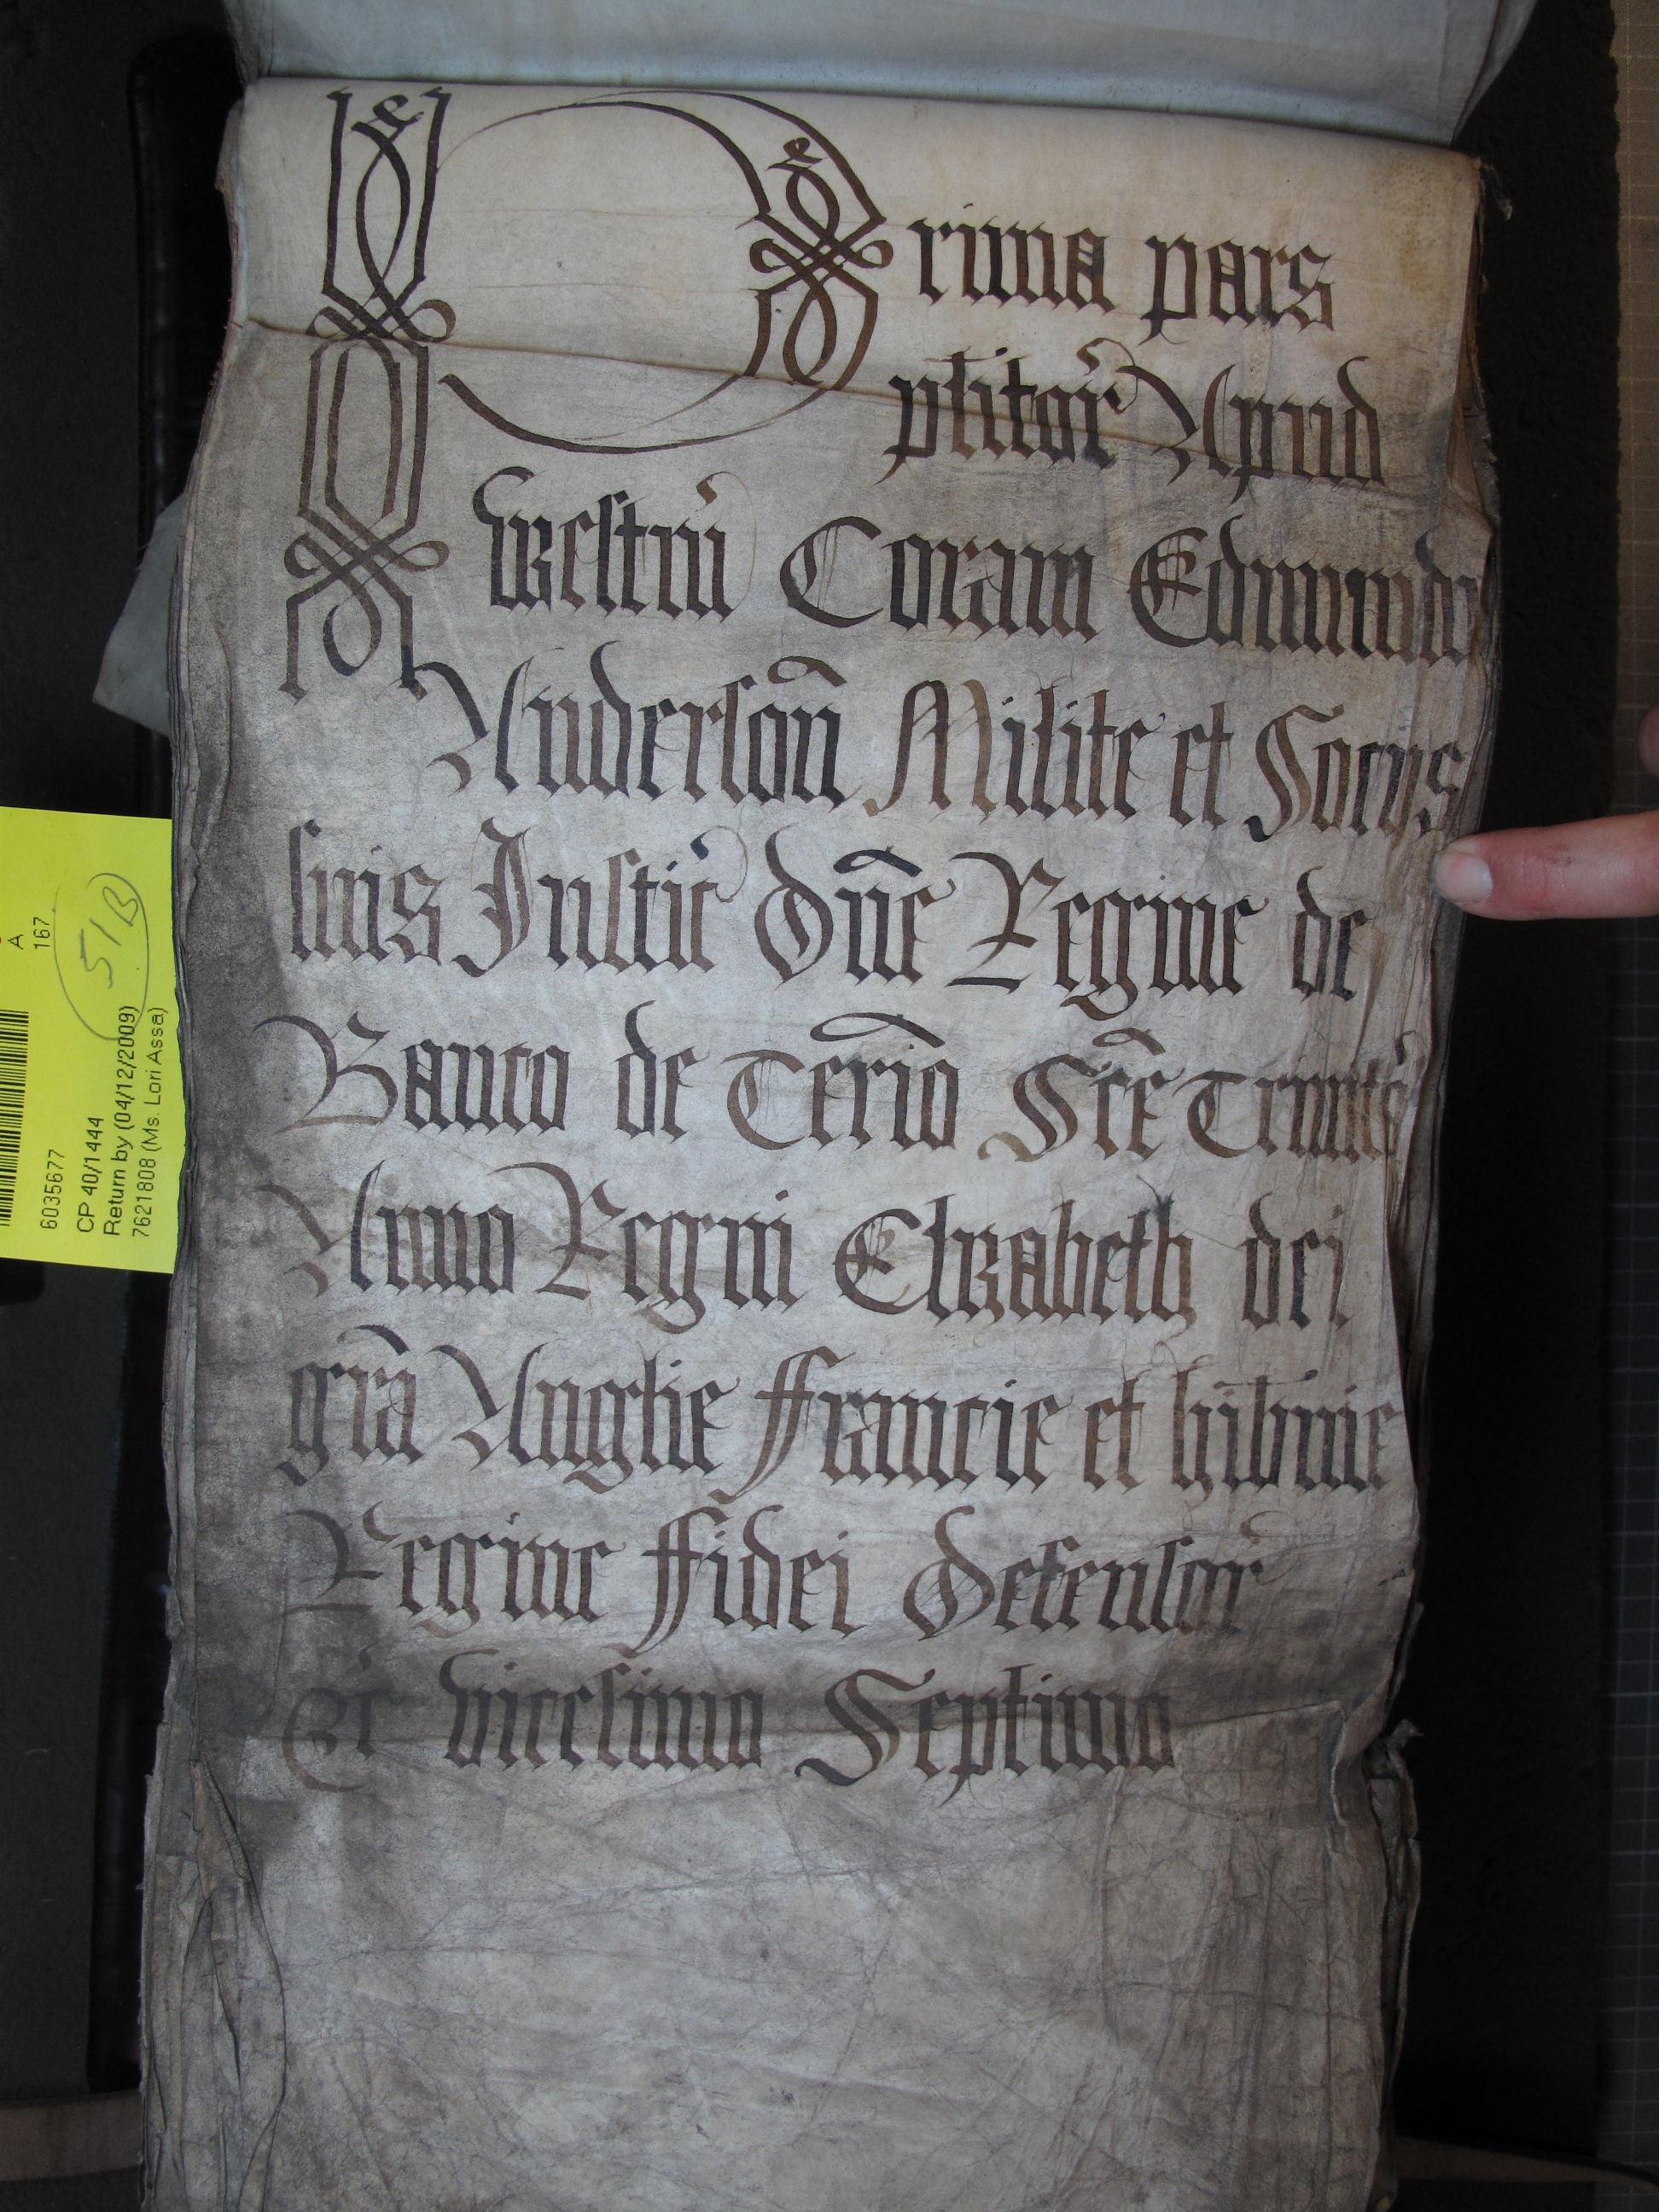 Prima pars
pl̄itor' Apud
Westm̄ Coram Edmundo
Anderson̄ Milite et Socijs
suis Justic' dn̄e Regine de
Banco de Term̄o Sc̄e Trinit'
Anno Regni Elizabeth dei
gr̄a Anglie ffrancie et hib̄nie
Regine ffidei defensor'
Etc' vicesimo Septimo
A
167
51B
6035677
CP 40/1444
Return by (04/12/2009)
7621808 (Ms. Lori Assa)